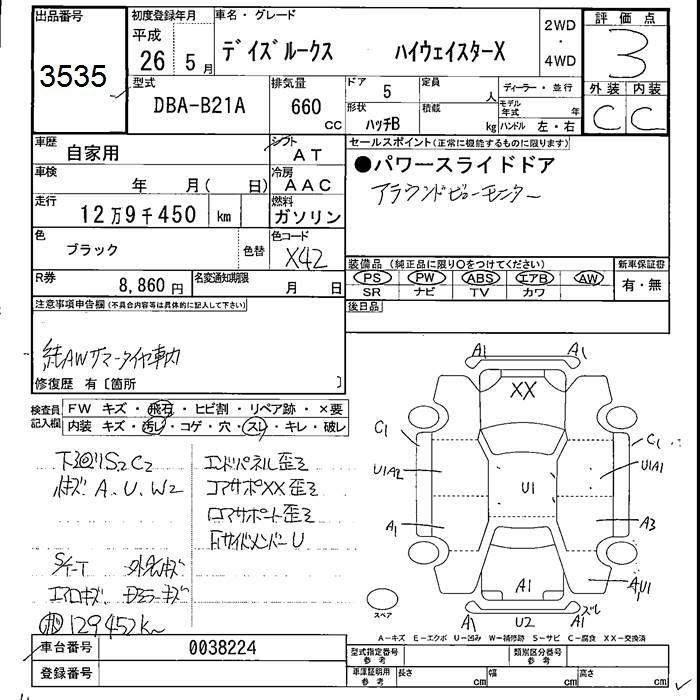 出品番号
3535
初度登録年月
平成
26 5月
車名・グレード
デイズルークス ハイウェイスターX
2WD
・
4WD
評価点
3
外装 内装
C C
型式
DBA-B21A
排気量
660
CC
ドア
5
定員
人
形状
ハッチB
積載
kg
ディーラー・並行
モデル年式 年
ハンドル 左・右
車歴
自家用
シフト
AT
車検
年 月( 日)
冷房
AAC
走行
12万9千450 km
燃料
ガソリン
色
ブラック
色替
色コード
X42
R券
8,860円
名変通知期限
月 日
セールスポイント(正常に機能するものに限ります)
●パワースライドドア
アラウンドビューモニター
装備品(純正品に限り○をつけてください)
PS PW ABS エアB AW
SR ナビ TV カワ
新車保証書
有・無
後日品
注意事項申告欄(不具合内容等は具体的に記入して下さい)
純AWサマータイヤ車内
修復歴 有〔箇所 〕
検査員
記入欄
FW キズ・飛石・ヒビ割・リペア跡・×要
内装 キズ・汚レ・コゲ・穴・スレ・キレ・破レ
下回りS2C2
小キズA、U、W2
S/T
エアロキズ
129452km
エンドパネル歪ミ
コアサポXX歪ミ
ロアサポート歪ミ
FサイドメンバーU
A1 A1
XX
C1 C1
U1A2 U1A1
U1
A1 A3
A1
A1 U2 A1
スペア
A-キズ E-エクボ U-凹み W-補修跡 S-サビ C-腐食 XX-交換済
車台番号
0038224
登録番号
型式指定番号
参考
類別区分番号
参考
車庫証明用
参考
長さ cm
幅 cm
高さ cm